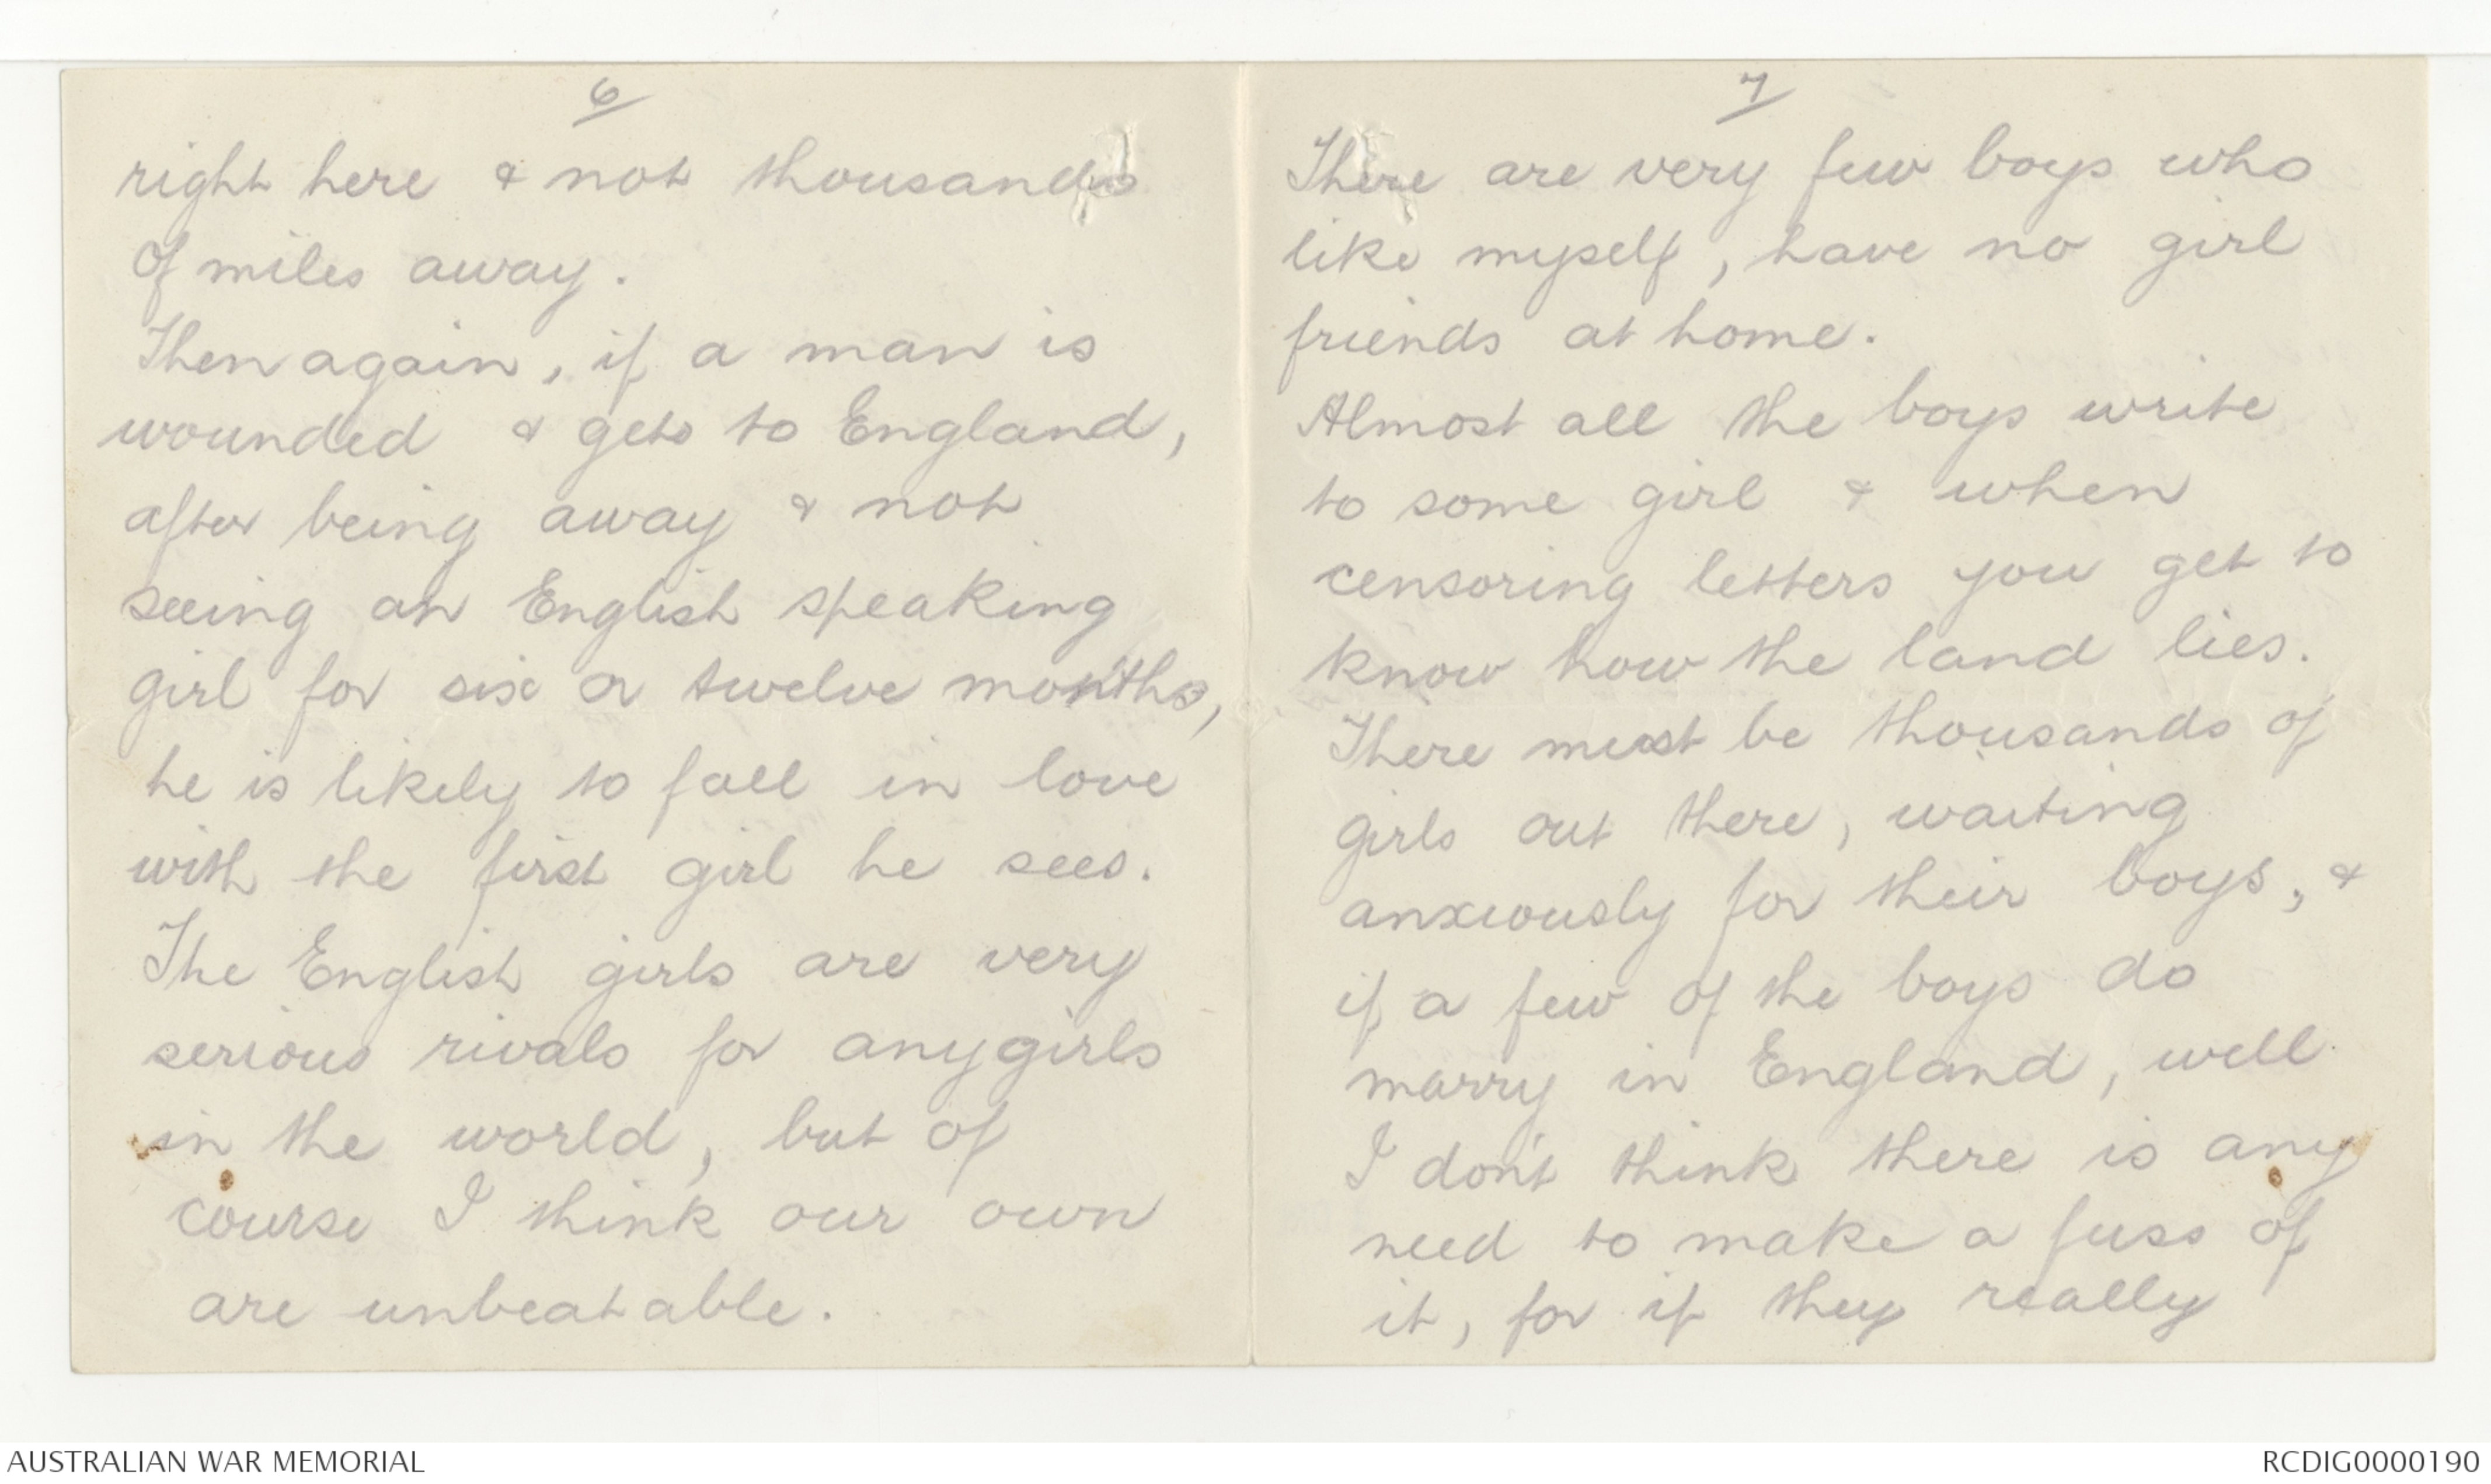 6
right here & not thousands
of miles away.
Then again, if a man is
wounded & gets to England,
after being away & not
seeing an English speaking
girl for six or twelve months,
he is likely to fall in love
with the first girl he sees.
The English girls are very
serious rivals for any girls
in the world, but of
course I think our own
are unbeatable.
7
There are very few boys who
like myself, have no girl
friends at home.
Almost all the boys write
to some girl & when
censoring letters you get to
know how the land lies.
There must be thousands of
girls out there, waiting
anxiously for their boys, &
if a few of the boys do
marry in England, well
I don't think there is any
need to make a fuss of
it, for if they really
AUSTRALIAN WAR MEMORIAL
RCDIG0000190